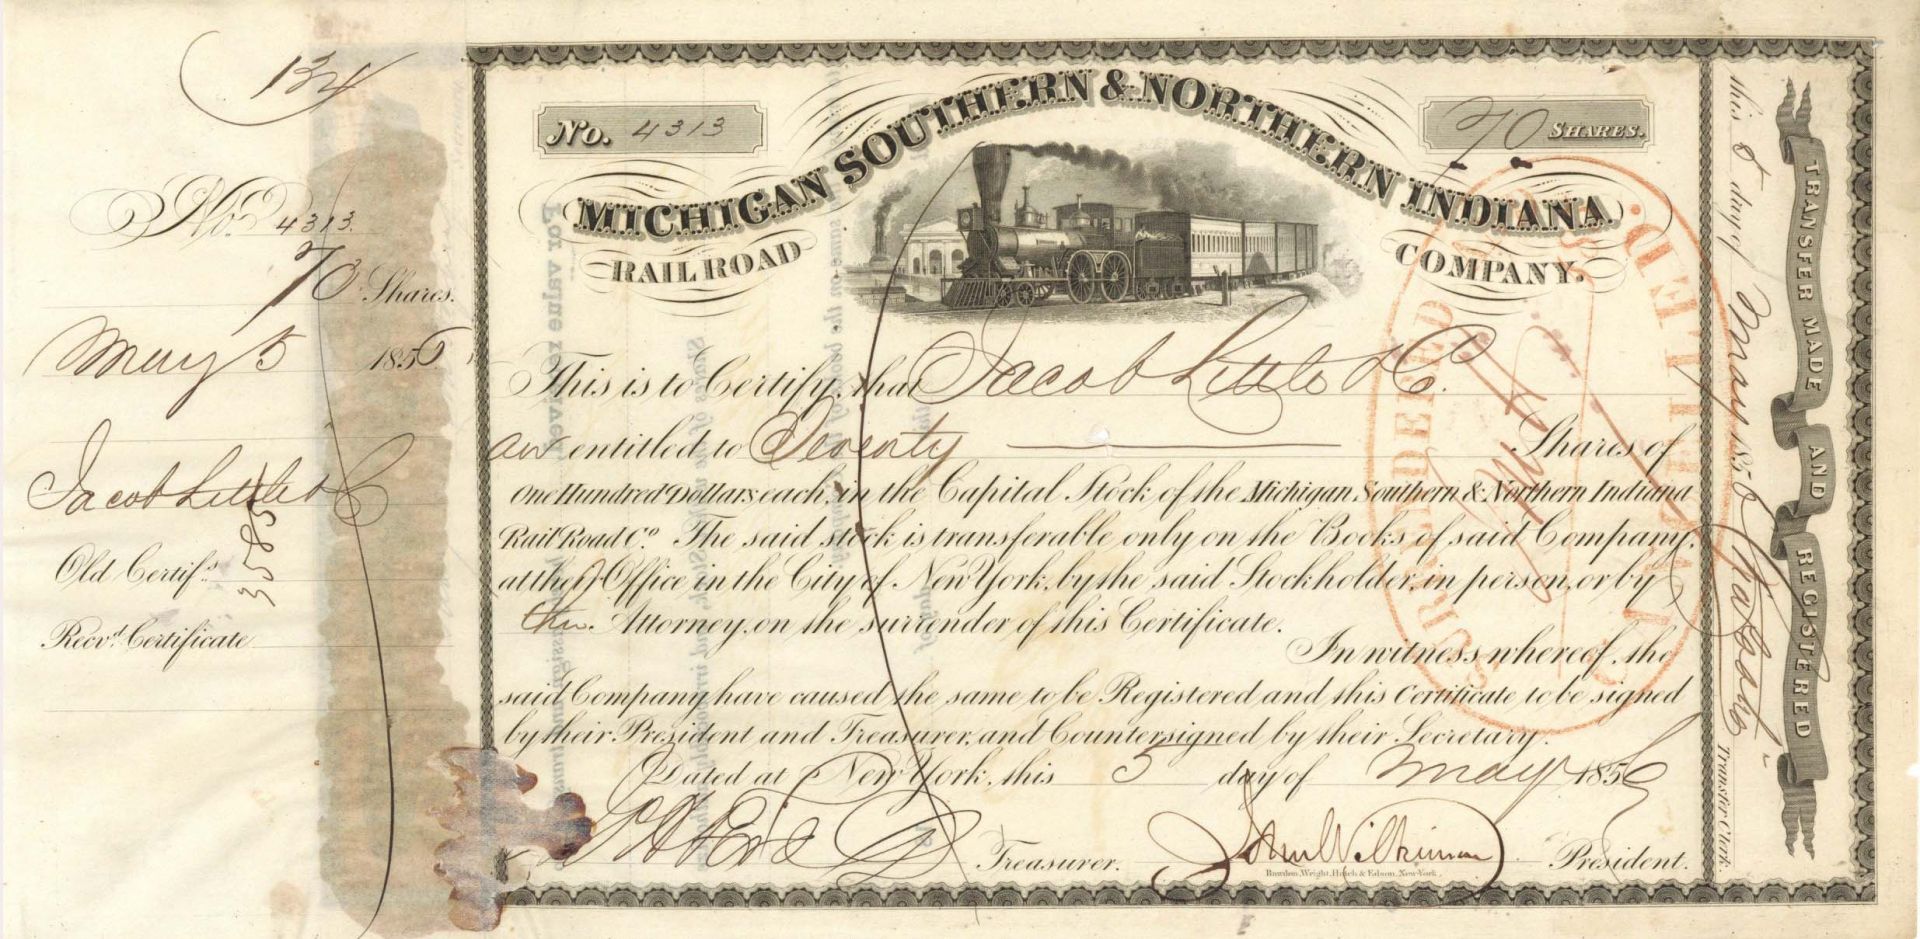 134
No. 4313
70 Shares.
May 5 1856
Jacob Little & Co
Old Certifs. 3585
Recvd. Certificate
No. 4313
70 SHARES.
MICHIGAN SOUTHERN & NORTHERN INDIANA
RAIL ROAD COMPANY.
This is to Certify, that Jacob Little & Co.
are entitled to Seventy Shares of
One Hundred Dollars each, in the Capital Stock of the Michigan Southern & Northern Indiana
Rail Road Co. The said stock is transferable only on the Books of said Company,
at their Office in the City of New York, by the said Stockholder, in person, or by
their Attorney, on the surrender of this Certificate.
In witness whereof, the
said Company have caused the same to be Registered and this Certificate to be signed
by their President and Treasurer, and Countersigned by their Secretary.
Dated at New York, this 5 day of May 1856
Treasurer. John Wilkinson President.
Bowden, Wright, Hatch & Edson, New-York.
SURRENDERED
CANCELLED
this 8 day of May 1856
Transfer Clerk
TRANSFER MADE AND REGISTERED
For value received